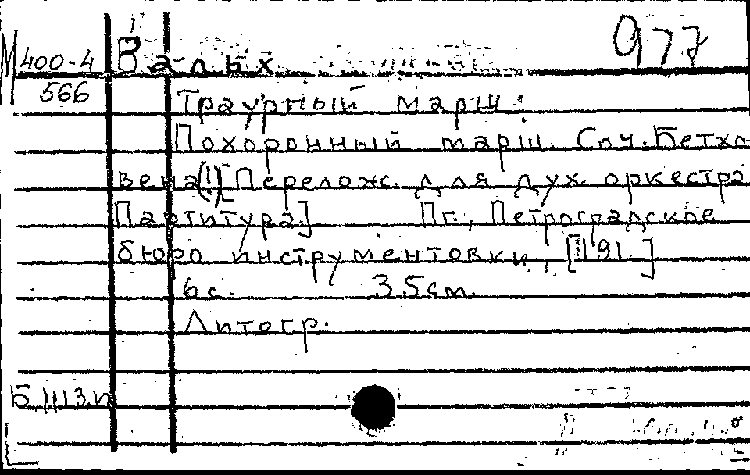 977
М 400-4 Вальх
566 Траурный марш:
Похоронный марш. Соч. Бетхо-
вена(!) [Перелож. для дух. оркестра
Партитура.] Пг., Петроградское
бюро инструментовки, [191.]
6 с. 35 см.
Литогр.